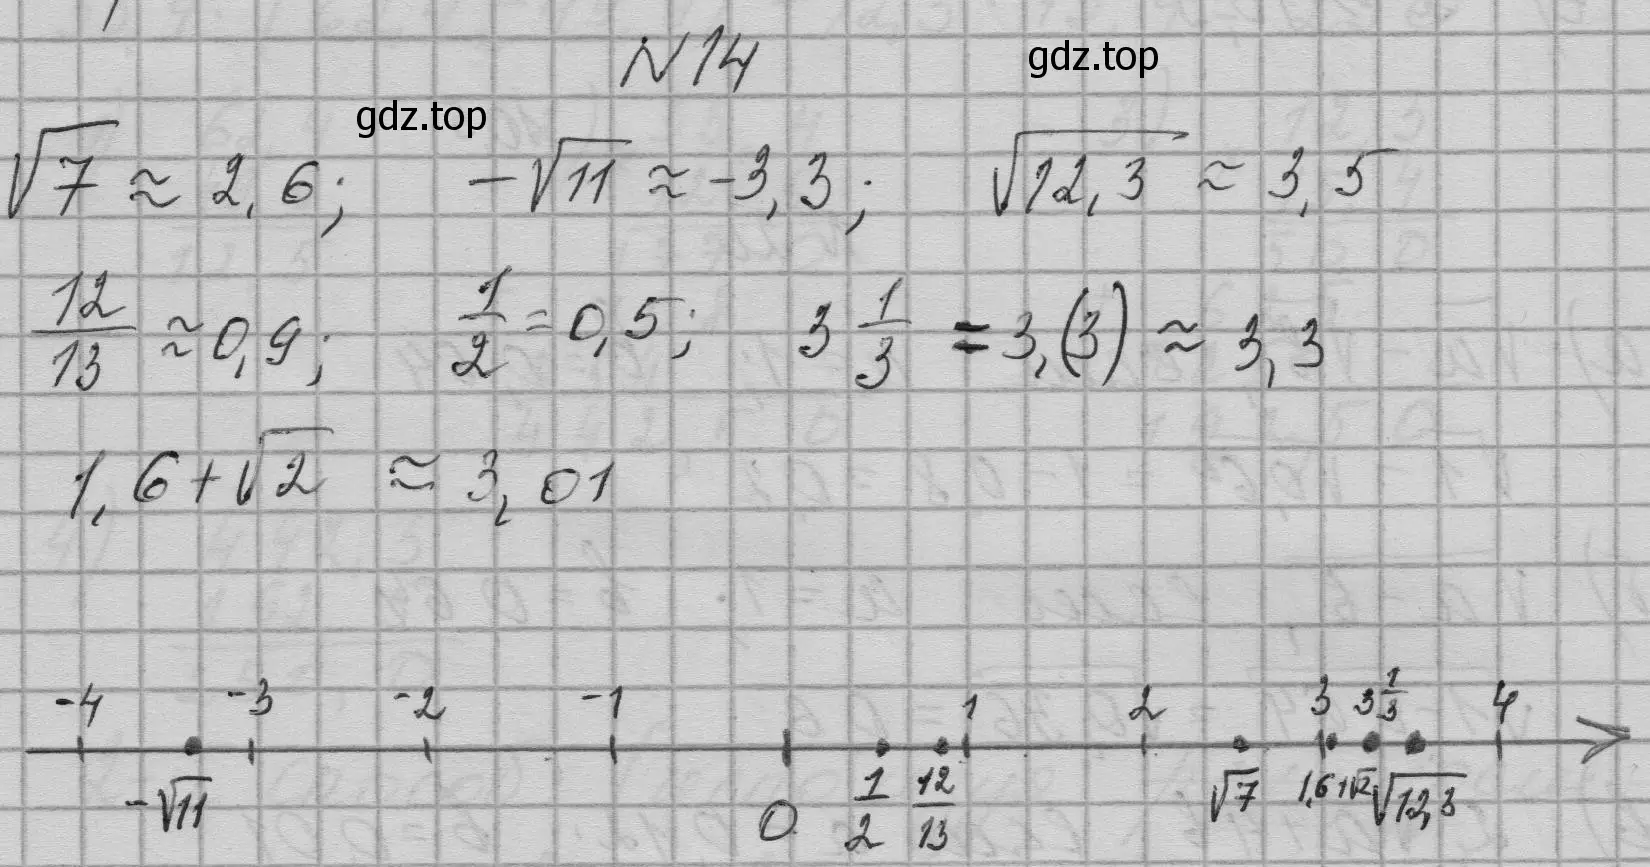 N 14
gdz.top
gdz.top
√7 ≈ 2,6; -√11 ≈ -3,3; √12,3 ≈ 3,5
12/13 ≈ 0,9; 1/2 = 0,5; 3 1/3 = 3,(3) ≈ 3,3
1,6+√2 ≈ 3,01
-4 -3 -2 -1 1 2 3 3 1/3 4
-√11 0 1/2 12/13 √7 1,6+√2 √12,3